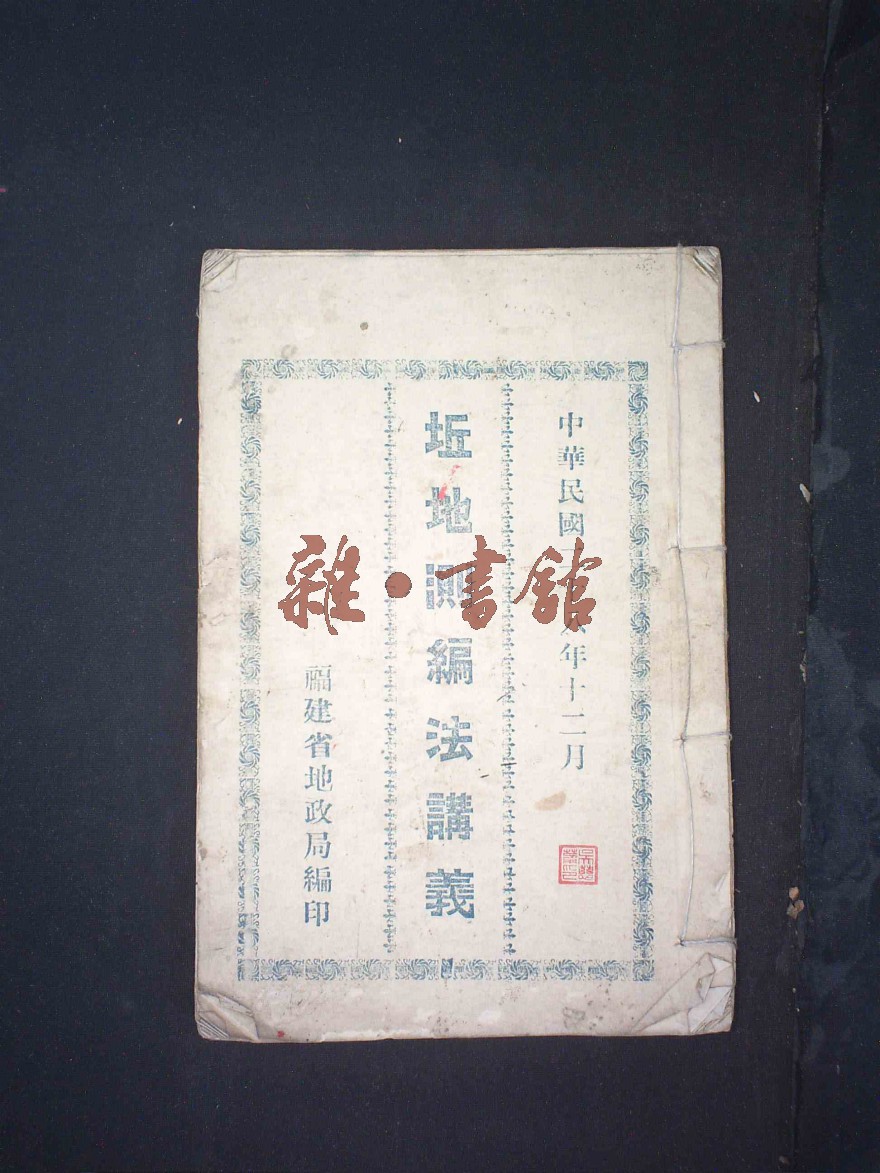 中華民國 六年十二月
坵地測編法講義
福建省地政局編印
雜·書館